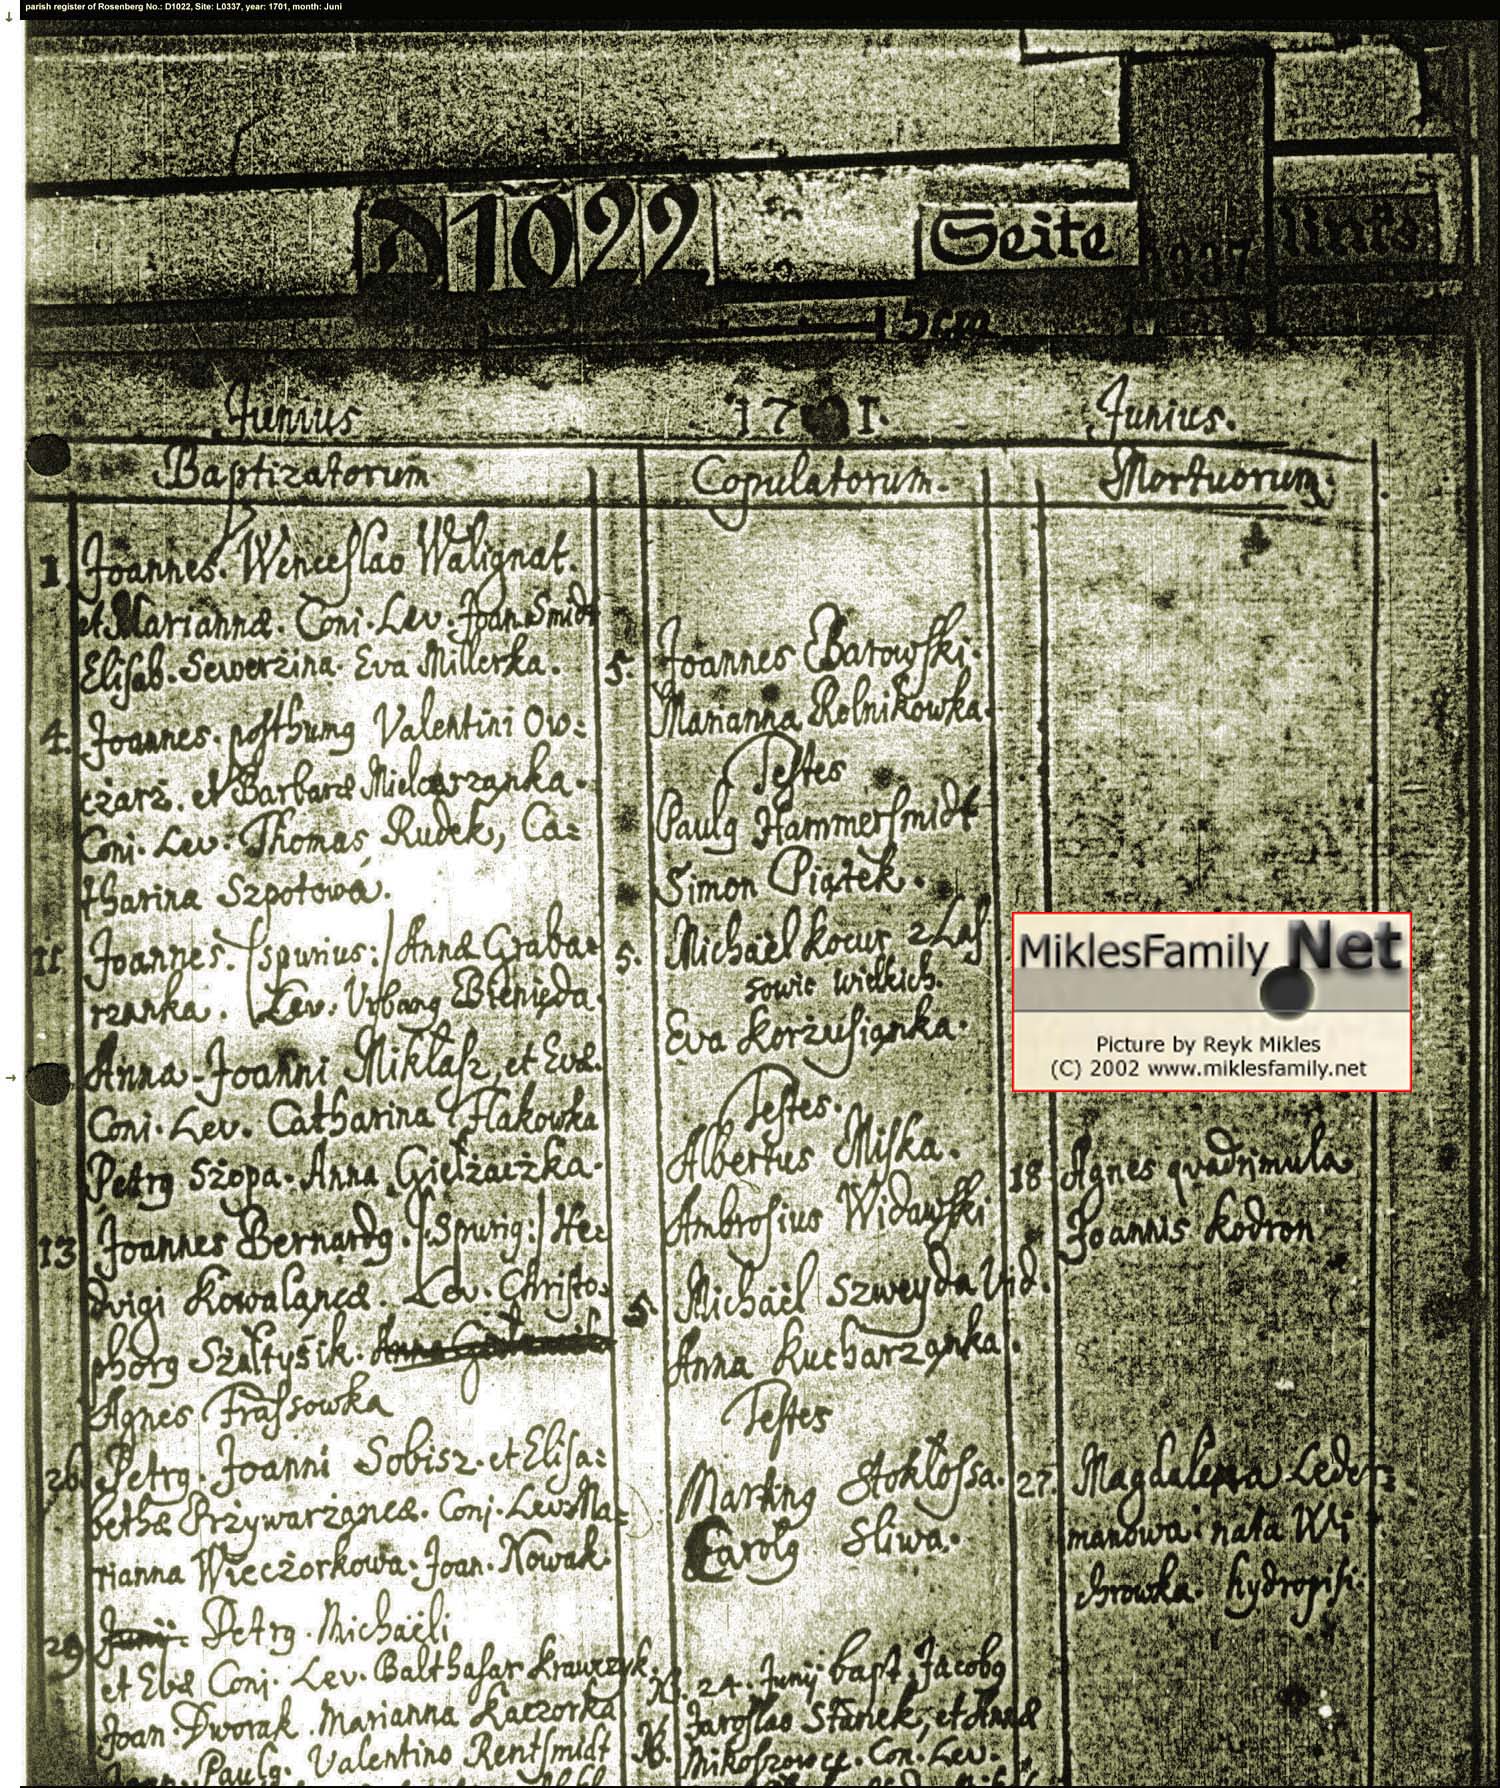 parish register of Rosenberg No.: D1022, Site: L0337, year: 1701, month: Juni
D1022
Seite
0337
links
15cm
Junius
1701.
Junius.
Baptizatorum
Copulatorum.
Mortuorum.
1 Joannes. Wenceslao Walignat.
et Mariannæ. Coni. Lev. Joan. Smidt
Elisab. Sewerzina. Eva Millerka.
4. Joannes. posthumg Valentini Ow=
czarz. et Barbaræ Mielcarzanka.
Coni. Lev. Thomas Rudek, Ca=
tharina Szpotowa.
11 Joannes. /spurius:/ Annæ Graba=
rzanka. Lev. Urbang Bienięda.
Anna. Joanni Miklasz, et Evæ.
Coni. Lev. Catharina Flakowka
Petrg Szopa. Anna
13 Joannes Bernardg. /:Spurig:/ He=
dvigi Kowaląncæ. Lev. Christo=
phorg Szaltyśik.
Agnes Frassowka
26 Petrg. Joanni Sobisz. et Elisa=
bethæ Przywarząncæ. Conj. Lev. Ma=
rianna Wieczorkowa. Joan. Nowak.
29 Junii. Petrg. Michaëli
et Evæ Conj. Lev. Balthasar Krawczyk.
Joan. Dworak. Marianna Kaczorka
Paulg. Valentino Rentsmidt
5. Joannes Barowski.
Marianna Rolnikowka.
Testes
Paulg Hammersmidt
Simon Piątek.
5. Michaël Kocur z Las
sowic wielkich.
Eva Korzusiąnka.
Testes.
Albertus Miska.
Ambrosius Widawski
5. Michaël Szweyda Vid.
Anna Kucharząnka.
Testes
Marting Stoklossa.
Carolg Sliwa.
N. 24. Junij bapt. Jacobg
Jaroslao Stanek, et Annæ
Con. Lev.
18 Agnes quadrimula
Joannis Kodron
27. Magdalena Leder=
manowa. nata Wi
chrowka. hydropisi.
MiklesFamily.Net
Picture by Reyk Mikles
(C) 2002 www.miklesfamily.net